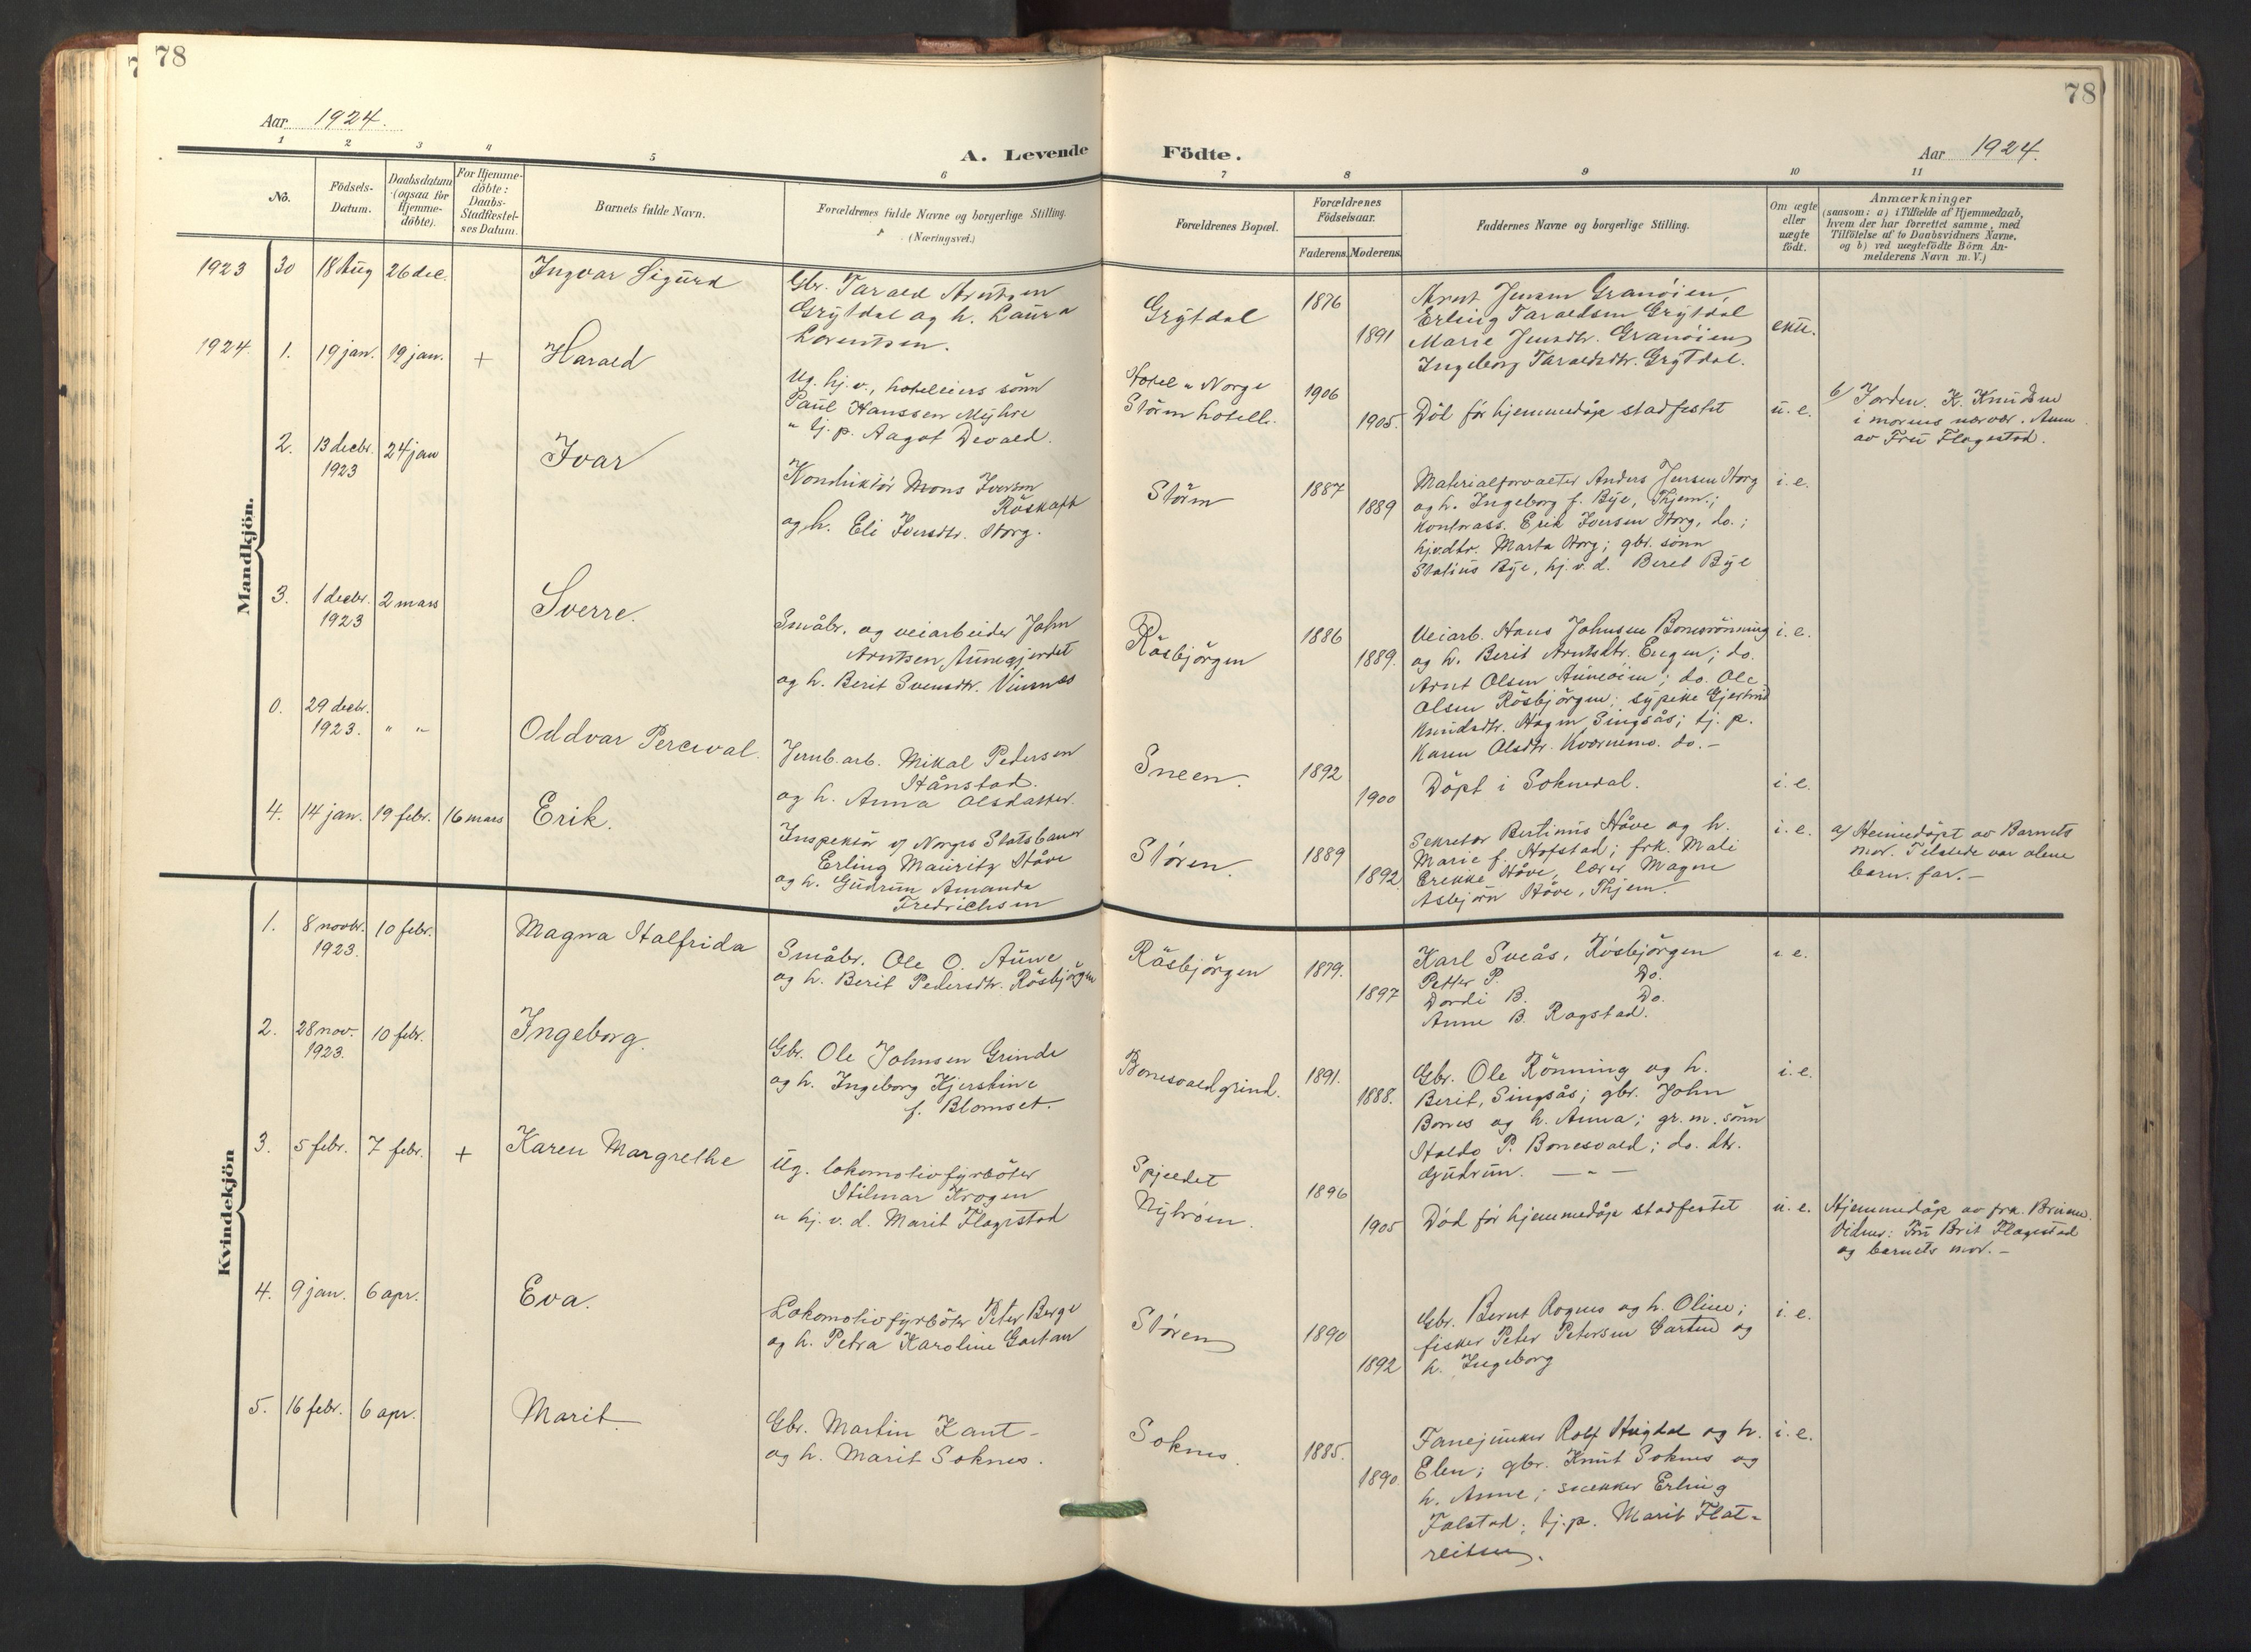 78
78
Aar 1924.
A. Levende Födte.
Aar 1924.
1 2 3 4 5 6 7 8 9 10 11
No.
Födsels-
Datum.
Daabsdatum
(ogsaa for
Hjemme-
döbte).
For Hjemme-
döbte:
Daabs-
Stadfæstel-
ses Datum.
Barnets fulde Navn.
Forældrenes fulde Navne og borgerlige Stilling.
(Næringsvei.)
Forældrenes Bopæl.
Forældrenes
Födselsaar.
Faderens. Moderens.
Faddernes Navne og borgerlige Stilling.
Om ægte
eller
uægte
födt.
Anmærkninger
(saasom: a) i Tilfælde af Hjemmedaab,
hvem der har forrettet samme, med
Tilföielse af to Daabsvidners Navne,
og b) ved uægtefödte Börn An-
melderens Navn m. V.)
Mandkjön.
1923 30 18 Aug 26 dec. Ingvar Sigurd
Gbr. Tarald Arntsen
Grytdal og h. Laura
Lorentsen.
Grytdal
1876
1891
Arnt Jensen Granöien,
Erling Taraldsen Grytdal
Marie Jensdtr. Granöien
Ingeborg Taraldsdtr. Grytdal.
ekte.
1924 1. 19 jan. 19 jan. + Harald
Ug. hj.v., hoteleiers sönn
Paul Hanssen Myhre
" tj. p. Aagot Devold.
Hotel "Norge
Stören hotell.
1906
1905.
Död för hjemmedåp stadfestet
u. e.
b/ Jordm. K. Knudsen
i morens nærvær. Anm.
av Fru Flagestad.
2. 13 decbr. 24 jan Ivar
1923
Konduktör Mons Iversen
Röskaft
og h. Eli Iversdtr. Horg.
Stören
1887
1889
Materialforvalter Anders Jensen Horg
og h. Ingeborg f. Bye, Thjem.;
kontorass. Erik Iversen Horg, do.;
hj.v.dtr. Marta Horg; gbr. sönn
Statius Bye, hj. v. d. Beret Bye
i. e.
3. 1 decbr. 2 mars Sverre.
1923
Småbr. og veiarbeider John
Arntsen Aunegjerdet
og h. Berit Svensdtr. Vinsnes
Råsbjörgen
1886
1889.
Veiarb. Hans Johnsen Bonesrönning
og h. Berit Arntsdtr. Engen; do.
Arnt Olsen Auneöien; do. Ole
Olsen Rösbjörgen; sypike Gjertrud
Knudsdtr. Hagen Singsås; tj. p.
Karen Olsdtr. Kvernmo. do. -
i. e.
0. 29 decbr. " " Oddvar Percival.
1923.
Jernb.arb. Mikal Pedersen
Hånstad.
og h. Anna Olsdatter.
Sneen.
1892
1900
Döpt i Soknedal.
i. e.
4. 14 jan. 19 febr. 16 mars Erik.
Inspektör v/ Norges Statsbaner
Erling Mauritz Høve
og h. Gudrun Amanda
Fredrichsen
Stören.
1889
1892
Sekretær Bertinius Høve og h.
Marie f. Hofstad; frk. Mali
Brekke Høve, lærer Magne
Asbjörn Høve, Thjem.
i. e.
a/ Hjemmedöpt av Barnets
mor. Tilstede var alene
barn. far. -
Kvindekjön
1. 8 novbr. 10 febr. Magna Halfrida
1923.
Småbr. Ole O. Aune
og h. Berit Pedersdtr. Rösbjörgen
Råsbjörgen
1879.
1897
Karl Sveås, Rösbjörgen
Petter P. Do.
Dordi B. Do.
Anne B. Rogstad.
i e.
2. 28 nov. 10 febr. Ingeborg.
1923.
Gbr. Ole Johnsen Grinde
og h. Ingeborg Kjerstine
f. Blomset.
Bonesvoldgrind.
1891.
1888.
Gbr. Ole Rönning og h.
Berit, Singsås; gbr. John
Bones og h. Anna; gr. m. sönn
Haldo P. Bonesvold; do. dtr.
Gudrun. — " —
i. e.
3. 5 febr. 7 febr. + Karen Margrethe
Ug. lokomotivfyrböter
Hilmar Krogen
" hj. v. d. Marit Flagestad
Spjeldet
Nytröen.
1896
1905
Död för hjemmedåp stadfestet
u. e.
Hjemmedåp av frk. Brunn.
Vidner: Fru Brit Flagestad
og barnets mor. -
4. 9 jan. 6 apr. Eva.
Lokomotivfyrböter Peter Berge
og h. Petra Karoline Gartan
Stören
1890
1892
Gbr. Bernt Rognes og h. Oline;
fisker Peter Petersen Garten og
h. Ingeborg
i. e.
5. 16 febr. 6 apr. Marit
Gbr. Martin Kant -
og h. Marit Soknes.
Soknes.
1885.
1890.
Fanejunker Rolf Hugdal og h.
Elen; gbr. Knut Soknes og
h. Anne; snekker Erling
Folstad; tj.p. Marit Flat-
reitan.
i. e.